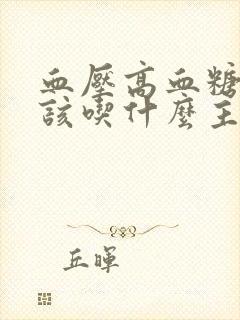 血壓高血糖
該喫什麼主
丘暉